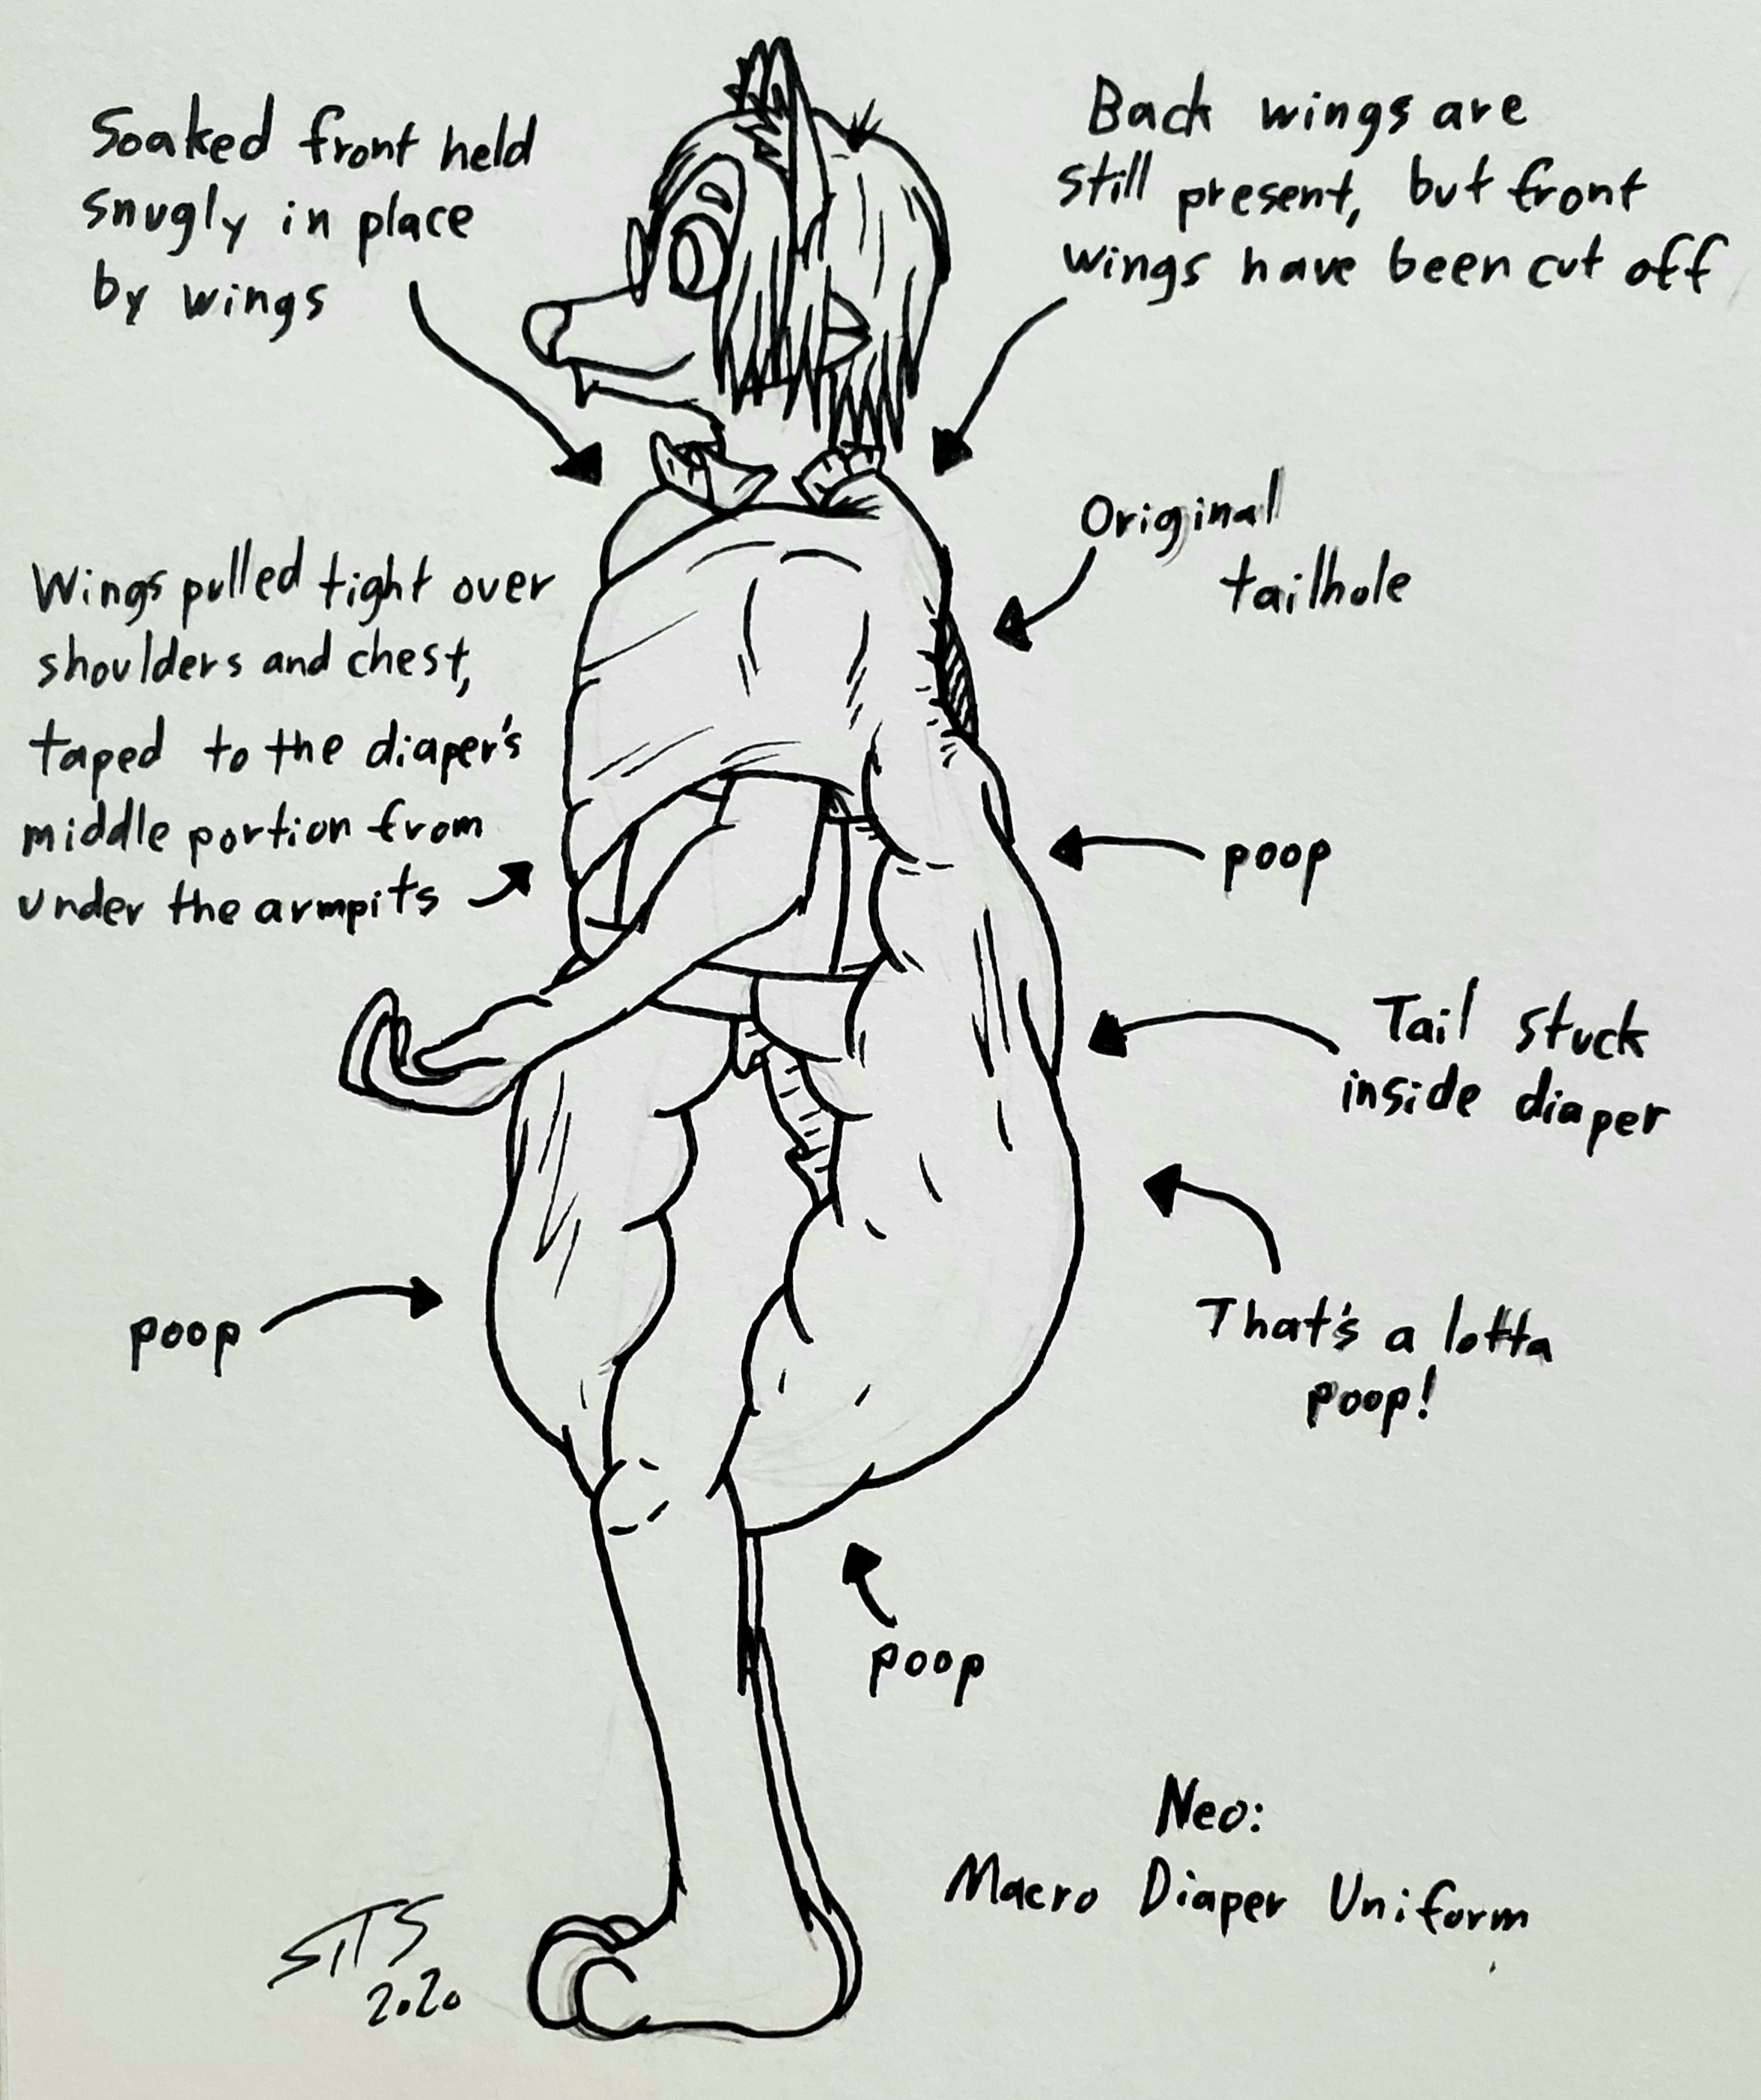 Soaked front held
snugly in place
by wings
Back wings are
still present, but front
wings have been cut off
Original
tailhole
Wings pulled tight over
shoulders and chest,
taped to the diaper's
middle portion from
under the armpits
poop
Tail stuck
inside diaper
poop
That's a lotta
poop!
poop
Neo:
Macro Diaper Uniform
SITS
2020